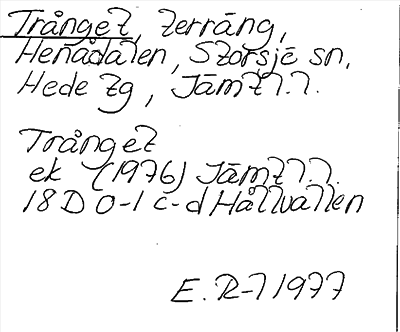 Trånget, terräng,
Henådalen, Storsjö sn,
Hede tg, Jämtl.l.
Trånget
ek (1976) Jämtl.l.
18 D 0-1 c-d Hållvallen
E. R-l 1977